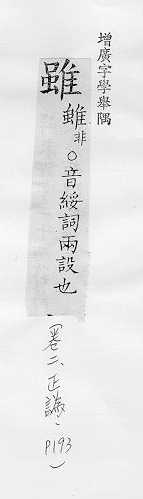 增廣字學舉隅
雖𨿽非○音綏詞兩設也
(卷二、正譌、P193)